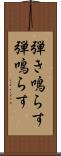 弾き鳴らす
弾鳴らす